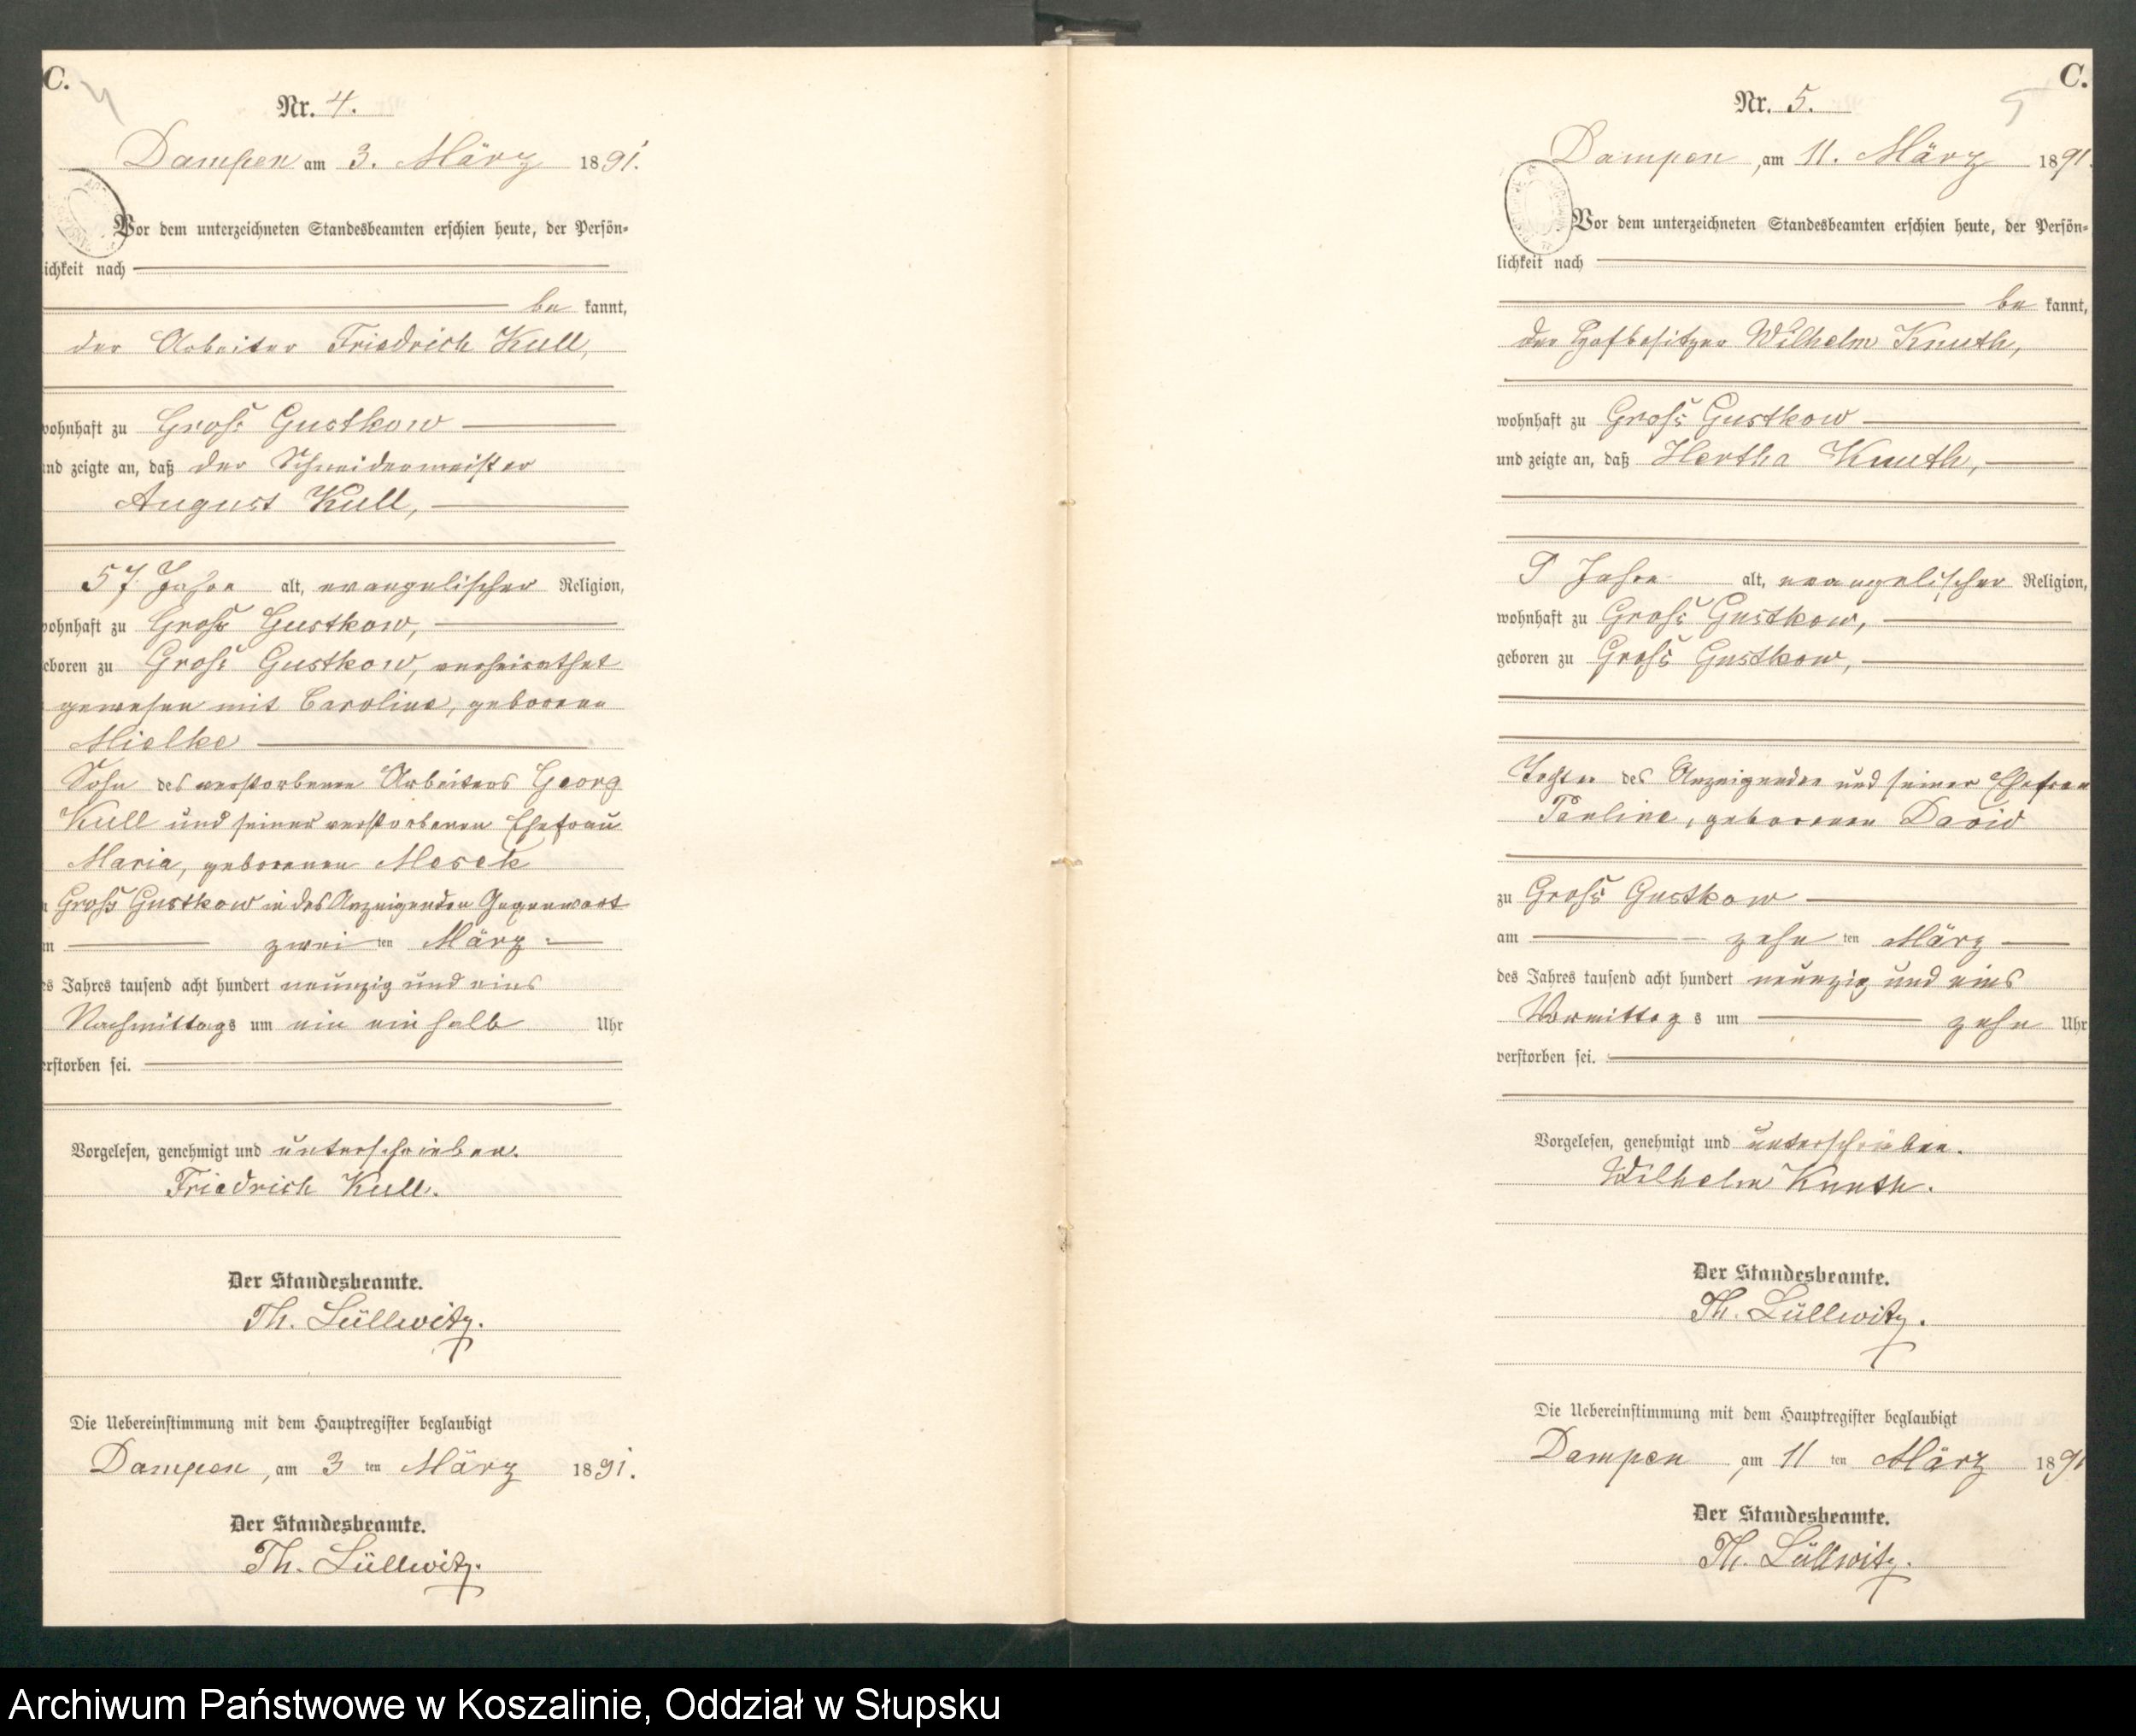 C.
4
Nr. 4.
Dampen am 3. März 1891.
Vor dem unterzeichneten Standesbeamten erschien heute, der Persön-
lichkeit nach
be kannt,
der Arbeiter Friedrich Kull,
wohnhaft zu Groß Gustkow
und zeigte an, daß der Schneidermeister
August Kull,
57 Jahre alt, evangelischer Religion,
wohnhaft zu Groß Gustkow,
geboren zu Groß Gustkow, verheirathet
gewesen mit Caroline, geborene
Mielke
Sohn des verstorbenen Arbeiters Georg
Kull und seiner verstorbenen Ehefrau
Maria, geborenen Mosek
Groß Gustkow in des Anzeigenden Gegenwart
am zwei ten März
des Jahres tausend acht hundert neunzig und eins
Nachmittags um ein ein halb Uhr
verstorben sei.
Vorgelesen, genehmigt und unterschrieben.
Friedrich Kull.
Der Standesbeamte.
Th. Lüllwitz.
Die Uebereinstimmung mit dem Hauptregister beglaubigt
Dampen, am 3 ten März 1891.
Der Standesbeamte.
Th. Lüllwitz.
C.
5
Nr. 5.
Dampen, am 11. März 1891.
Vor dem unterzeichneten Standesbeamten erschien heute, der Persön-
lichkeit nach
be kannt,
der Hofbesitzer Wilhelm Knuth,
wohnhaft zu Groß Gustkow
und zeigte an, daß Hertha Knuth,
Jahre alt, evangelischer Religion,
wohnhaft zu Groß Gustkow,
geboren zu Groß Gustkow,
Tochter des Anzeigenden und seiner Ehefrau
Pauline, geborenen David
zu Groß Gustkow
am zehn ten März
des Jahres tausend acht hundert neunzig und eins
Vormittag s um zehn Uhr
verstorben sei.
Vorgelesen, genehmigt und unterschrieben.
Wilhelm Knuth.
Der Standesbeamte.
Th. Lüllwitz.
Die Uebereinstimmung mit dem Hauptregister beglaubigt
Dampen am 11 ten März 1891
Der Standesbeamte.
Th. Lüllwitz.
Archiwum Państwowe w Koszalinie, Oddział w Słupsku